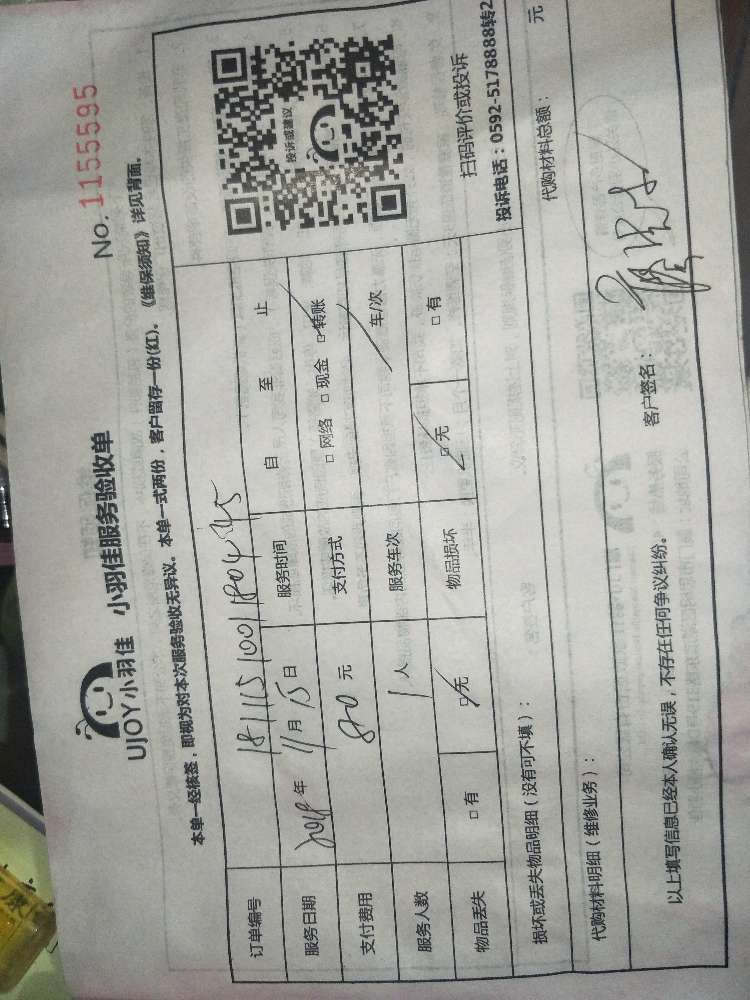 No. 1155595
UJOY小羽佳 小羽佳服务验收单
本单一经核签，即视为对本次服务验收无异议。本单一式两份，客户留存一份(红)。《维保须知》详见背面。
订单编号 181115100118044​5
服务日期 2018年 11月 15日 服务时间 自 至 止
支付费用 80元 支付方式 □网络 □现金 □转账
服务人数 1人 服务车次 车/次
物品丢失 □有 □无 物品损坏 □无 □有
投诉或建议
扫码评价或投诉
投诉电话：0592-5178888转2
损坏或丢失物品明细（没有可不填）：
代购材料明细（维修业务）： 代购材料总额： 元
以上填写信息已经本人确认无误，不存在任何争议纠纷。 客户签名：